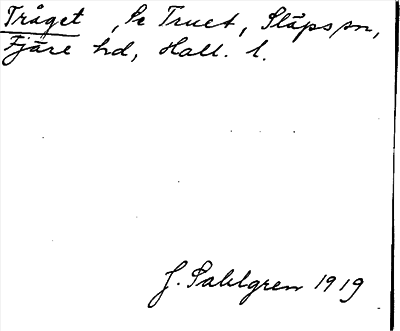 Tråget, Se Truet, Släps sn,
Fjäre hd, Hall. l.
J. Sahlgren 1919